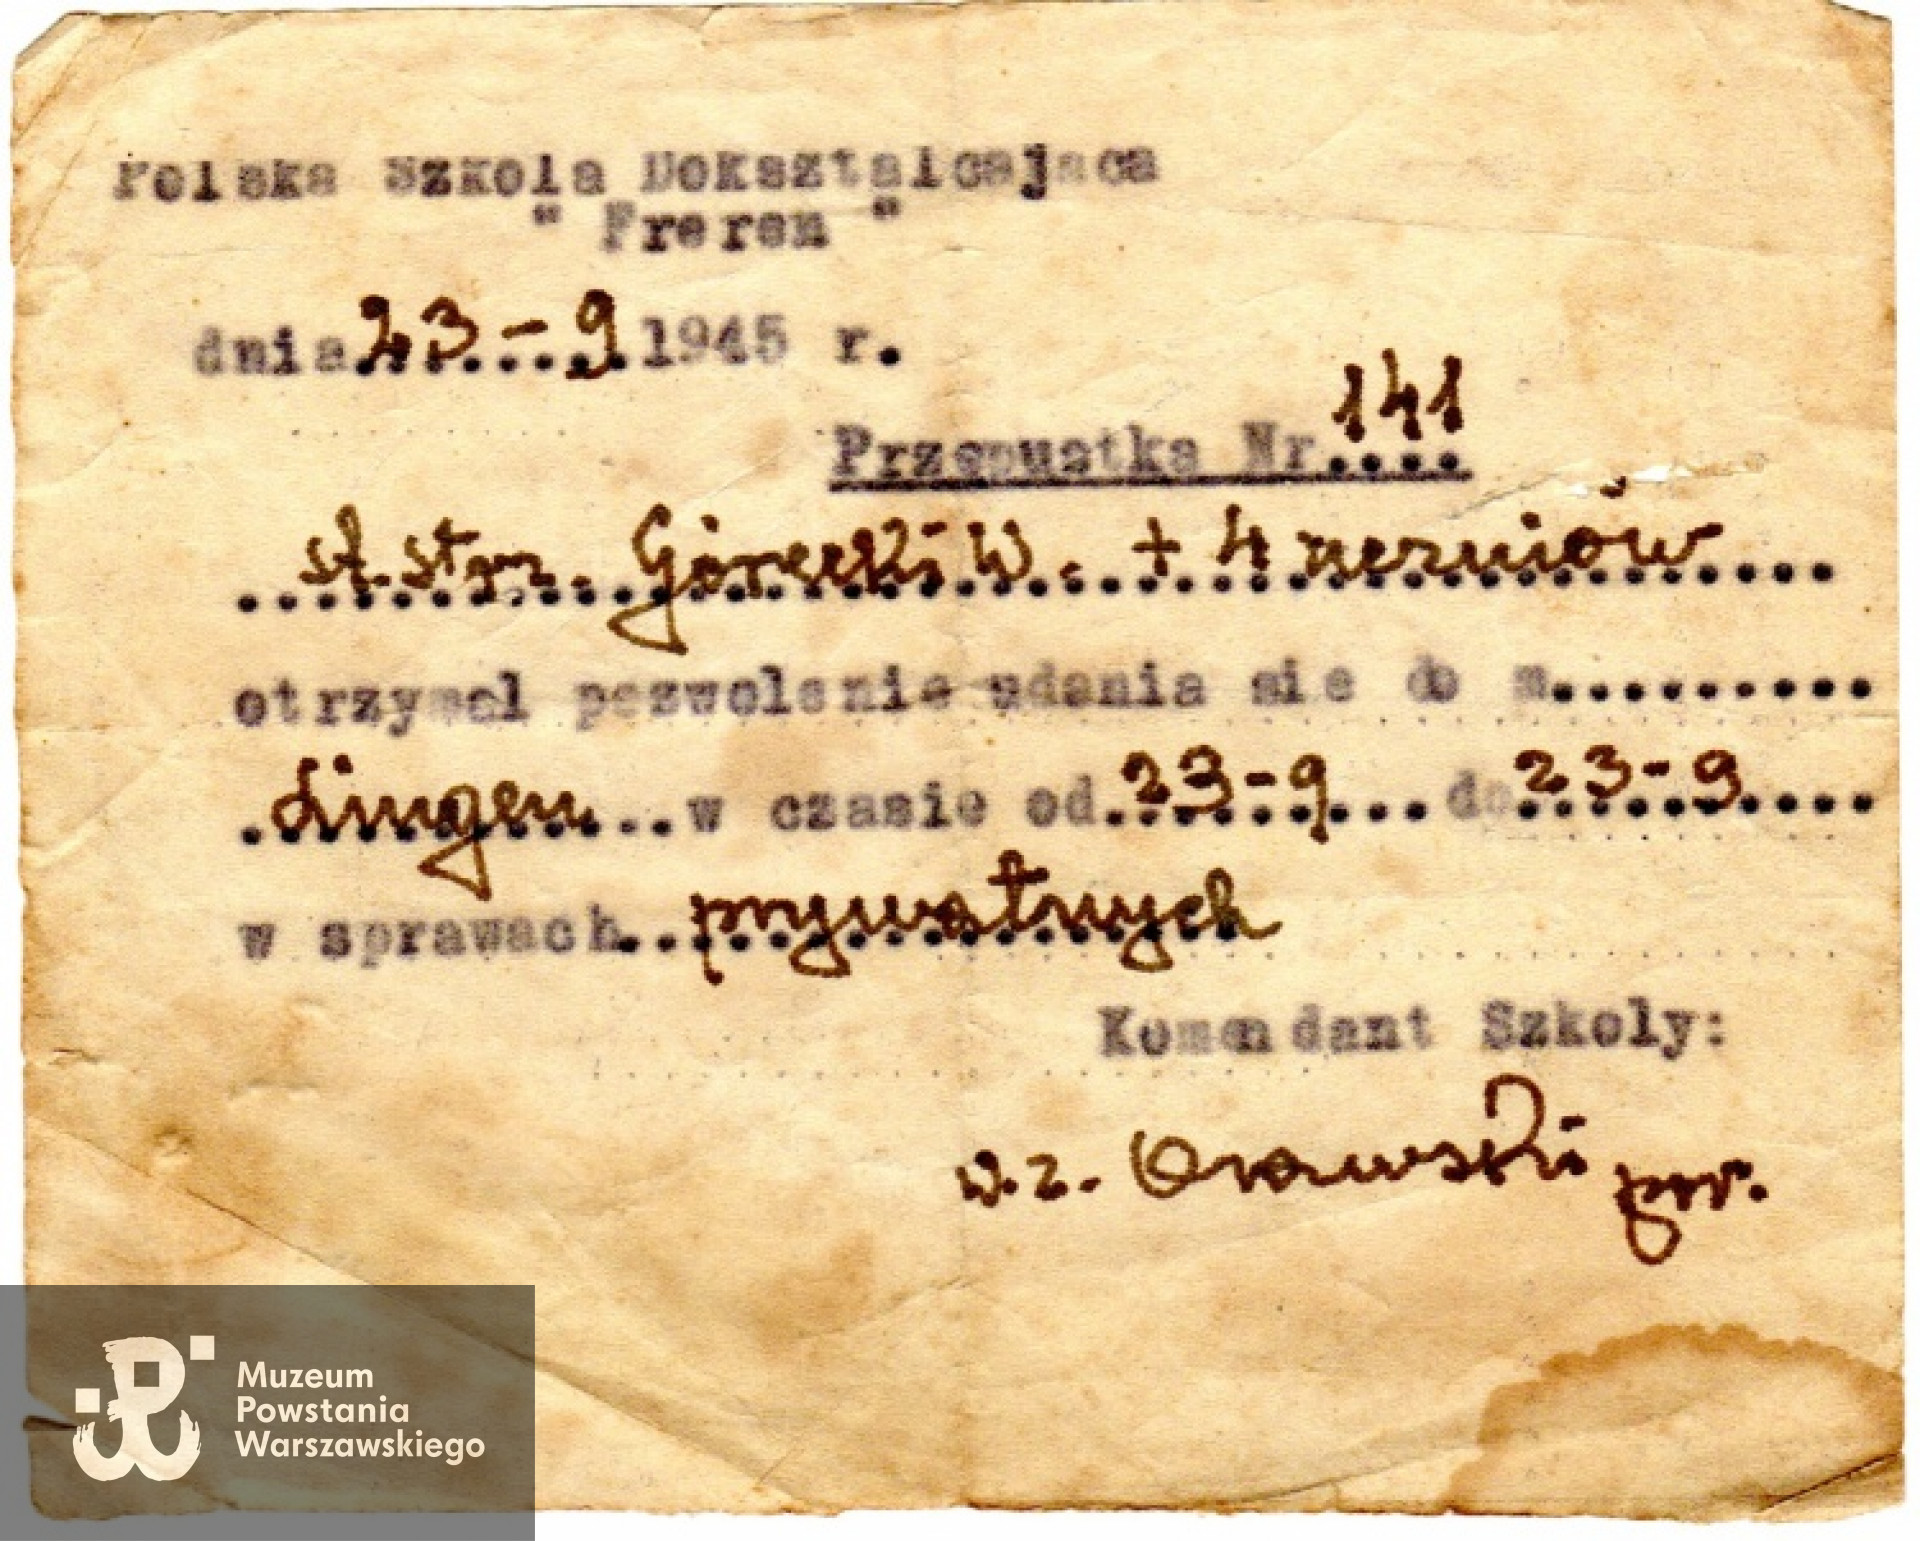 Polska Szkola Doksztalcajaca
" Freren "
dnia 23-9 1945 r.
Przepustka Nr.141
st. strz. Górecki W. + 4 uczniów
otrzymal pozwolenie udania sie do m..........
Lingen w czasie od 23-9 do 23-9
w sprawach prywatnych
Komendant Szkoly:
w.z. Orawski por.
Muzeum
Powstania
Warszawskiego